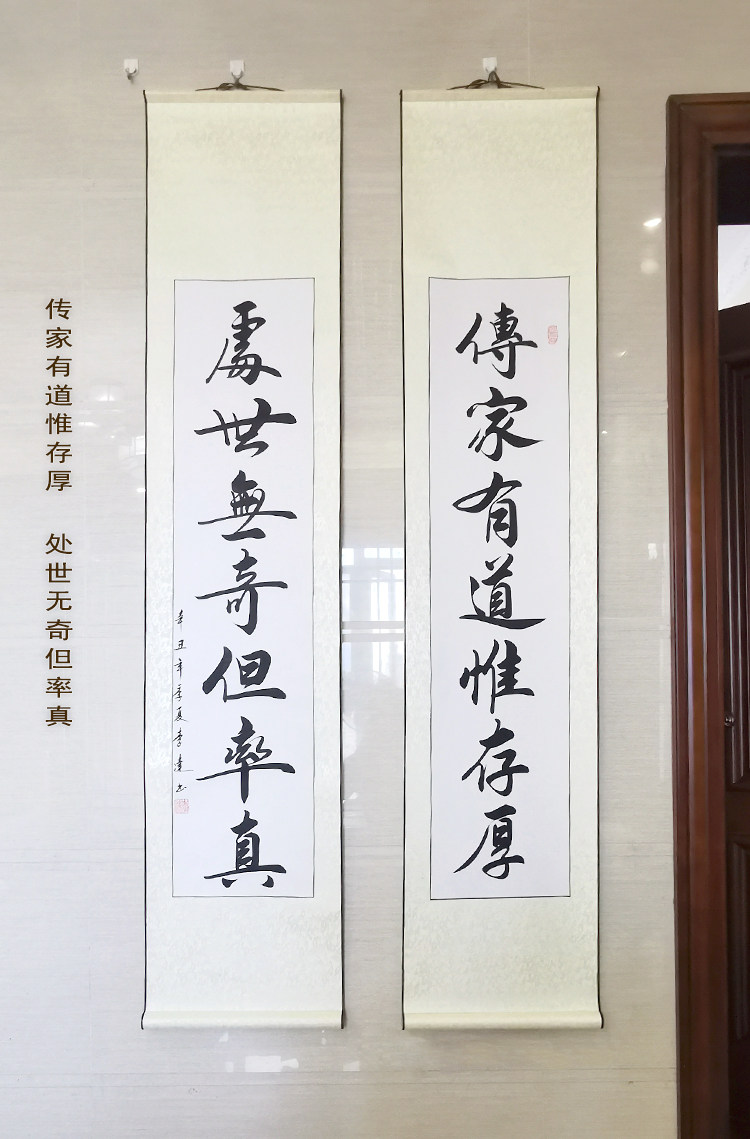 傳家有道惟存厚
處世無奇但率真
辛丑年季夏李達书
传家有道惟存厚 处世无奇但率真